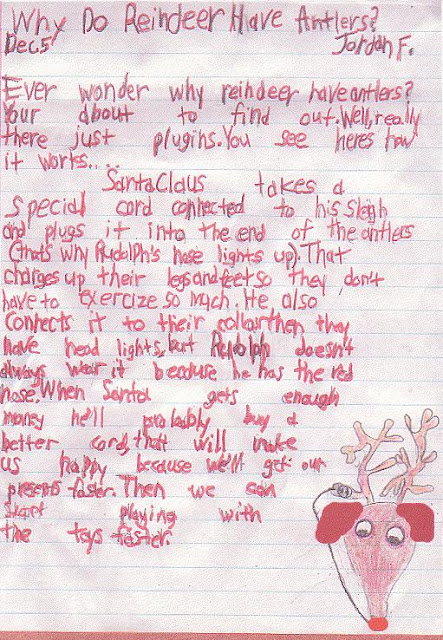 Why Do Reindeer Have Antlers?
Dec.5 Jordan F.
Ever wonder why reindeer have antlers?
Your about to find out. Well, really
there just plugins. You see heres how
it works....
Santa Claus takes a
special cord connected to his sleigh
and plugs it into the end of the antlers
(thats why Rudolph's nose lights up). That
charges up their legs and feet so they don't
have to exercize so much. He also
connects it to their collar then they
have head lights, but Rudolph doesn't
always wear it because he has the red
nose. When Santa gets enough
money he'll probably buy a
better cord, that will make
us happy because we'll get our
presents faster. Then we can
start playing with
the toys faster.